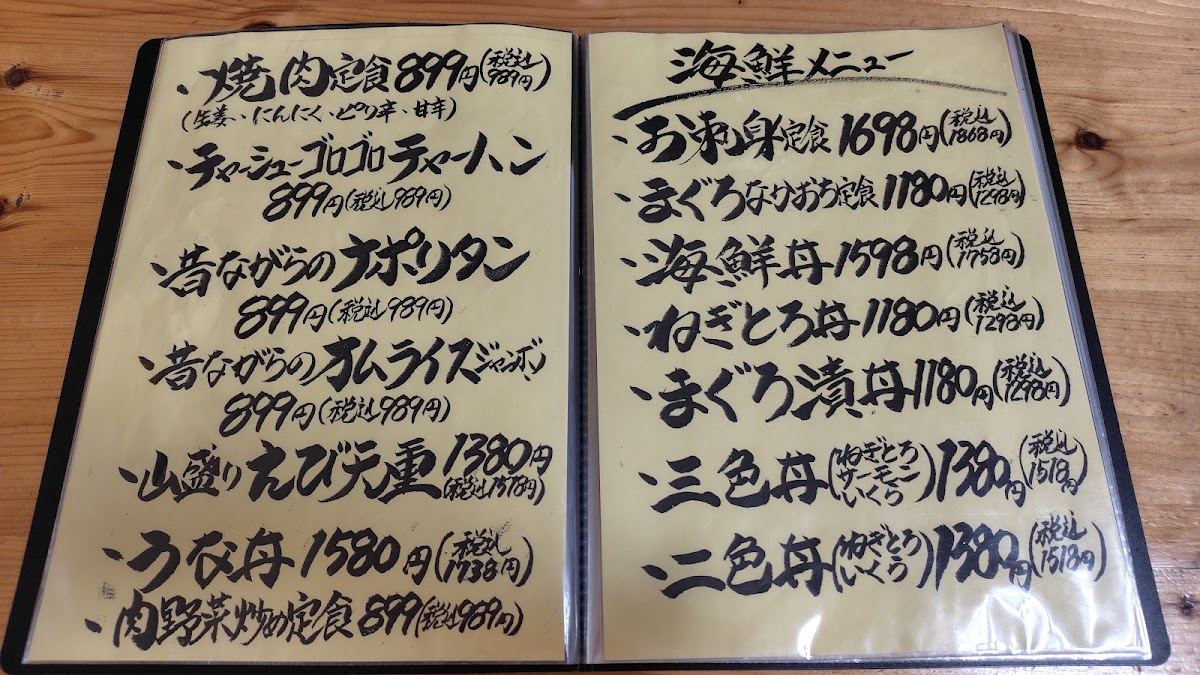 、焼肉定食 899円(税込989円)
(生姜、にんにく、ピリ辛、甘辛)
、チャーシューゴロゴロチャーハン
899円(税込989円)
、昔ながらのナポリタン
899円(税込989円)
、昔ながらのオムライスジャンボ
899円(税込989円)
、山盛りえび天重 1380円
(税込1518円)
、うな丼 1580円(税込1738円)
、肉野菜炒め定食 899(税込989円)
海鮮メニュー
、お刺身定食 1698円(税込1868円)
、まぐろなかおち定食 1180円(税込1298円)
、海鮮丼 1598円(税込1758円)
、ねぎとろ丼 1180円(税込1298円)
、まぐろ漬丼 1180円(税込1298円)
、三色丼(ねぎとろ サーモン いくら) 1380円(税込1518円)
、二色丼(ねぎとろ いくら) 1380円(税込1518円)